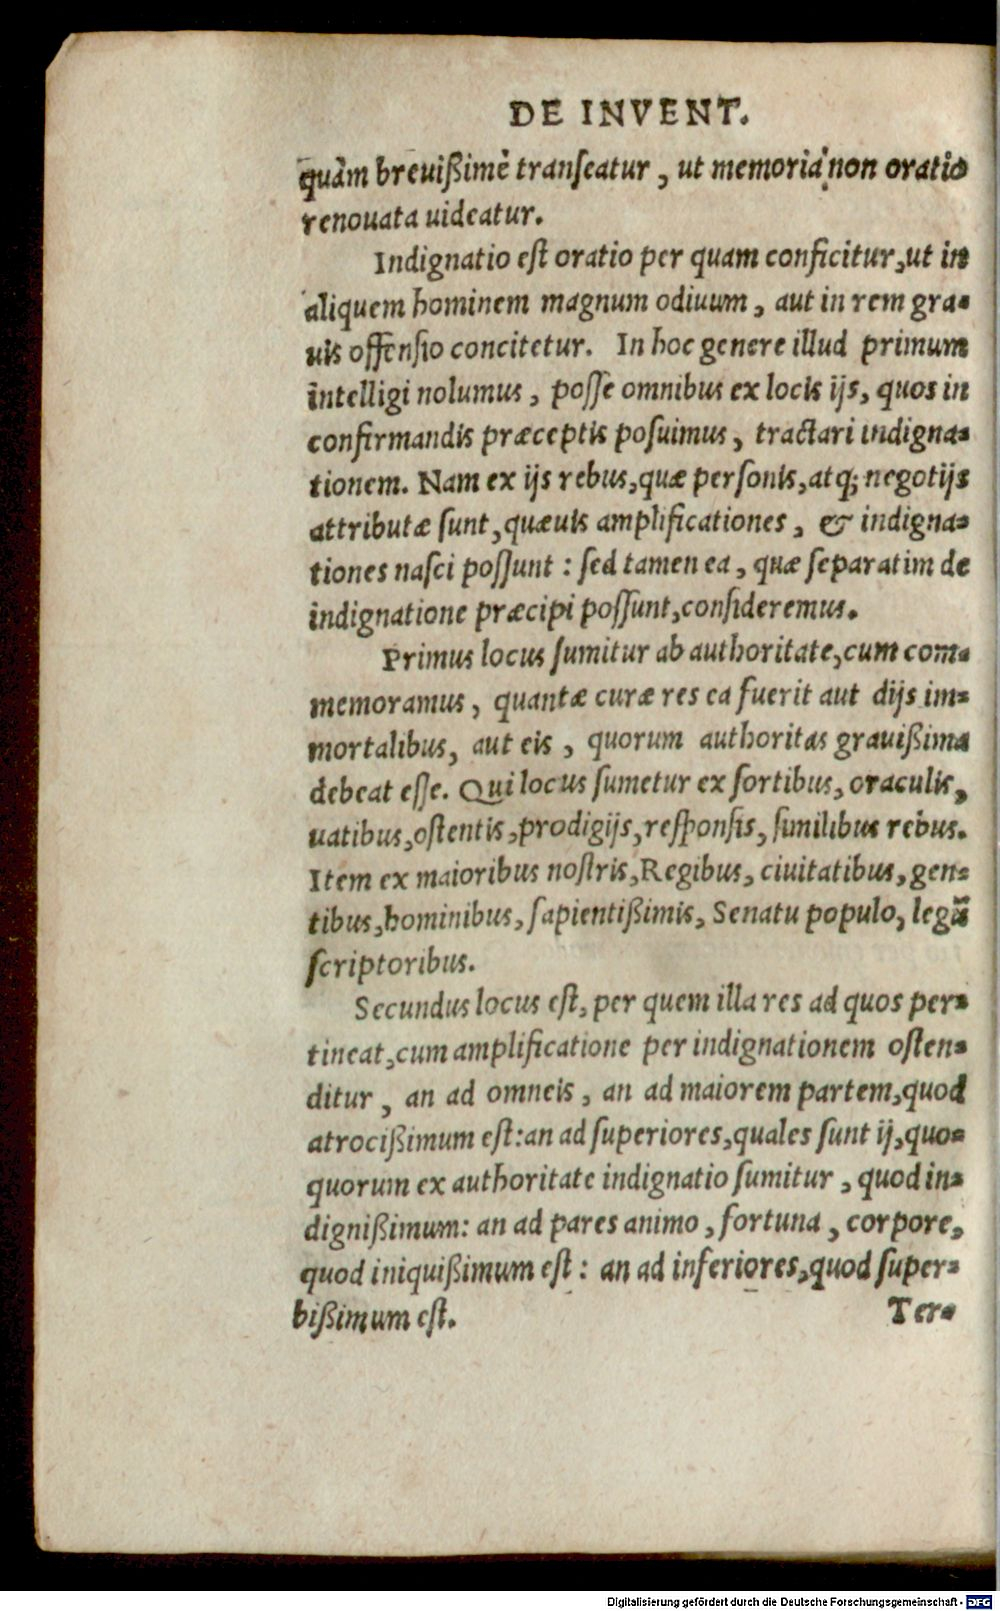 DE INVENT.
quàm breuißimè tranſeatur, ut memoria, non oratio
renouata uideatur.
Indignatio eſt oratio per quam conficitur, ut in
aliquem hominem magnum odiuum, aut in rem gra-
uis offenſio concitetur. In hoc genere illud primum
intelligi nolumus, poſſe omnibus ex locis ijs, quos in
confirmandis præceptis poſuimus, tractari indigna-
tionem. Nam ex ijs rebus, quæ perſonis, atq; negotijs
attributæ ſunt, quæuis amplificationes, & indigna-
tiones naſci poſſunt: ſed tamen ea, quæ ſeparatim de
indignatione præcipi poſſunt, conſideremus.
Primus locus ſumitur ab authoritate, cum com-
memoramus, quantæ curæ res ea fuerit aut dijs im-
mortalibus, aut eis, quorum authoritas grauißima
debeat eſſe. Qui locus ſumetur ex ſortibus, oraculis,
uatibus, oſtentis, prodigijs, reſponſis, ſimilibus rebus.
Item ex maioribus noſtris, Regibus, ciuitatibus, gen-
tibus, hominibus, ſapientißimis, Senatu populo, legū
ſcriptoribus.
Secundus locus eſt, per quem illa res ad quos per-
tineat, cum amplificatione per indignationem oſten-
ditur, an ad omneis, an ad maiorem partem, quod
atrocißimum eſt: an ad ſuperiores, quales ſunt ij, quo-
quorum ex authoritate indignatio ſumitur, quod in-
dignißimum: an ad pares animo, fortuna, corpore,
quod iniquißimum eſt: an ad inferiores, quod ſuper-
bißimum eſt.
Ter-
Digitalisierung gefördert durch die Deutsche Forschungsgemeinschaft - DFG